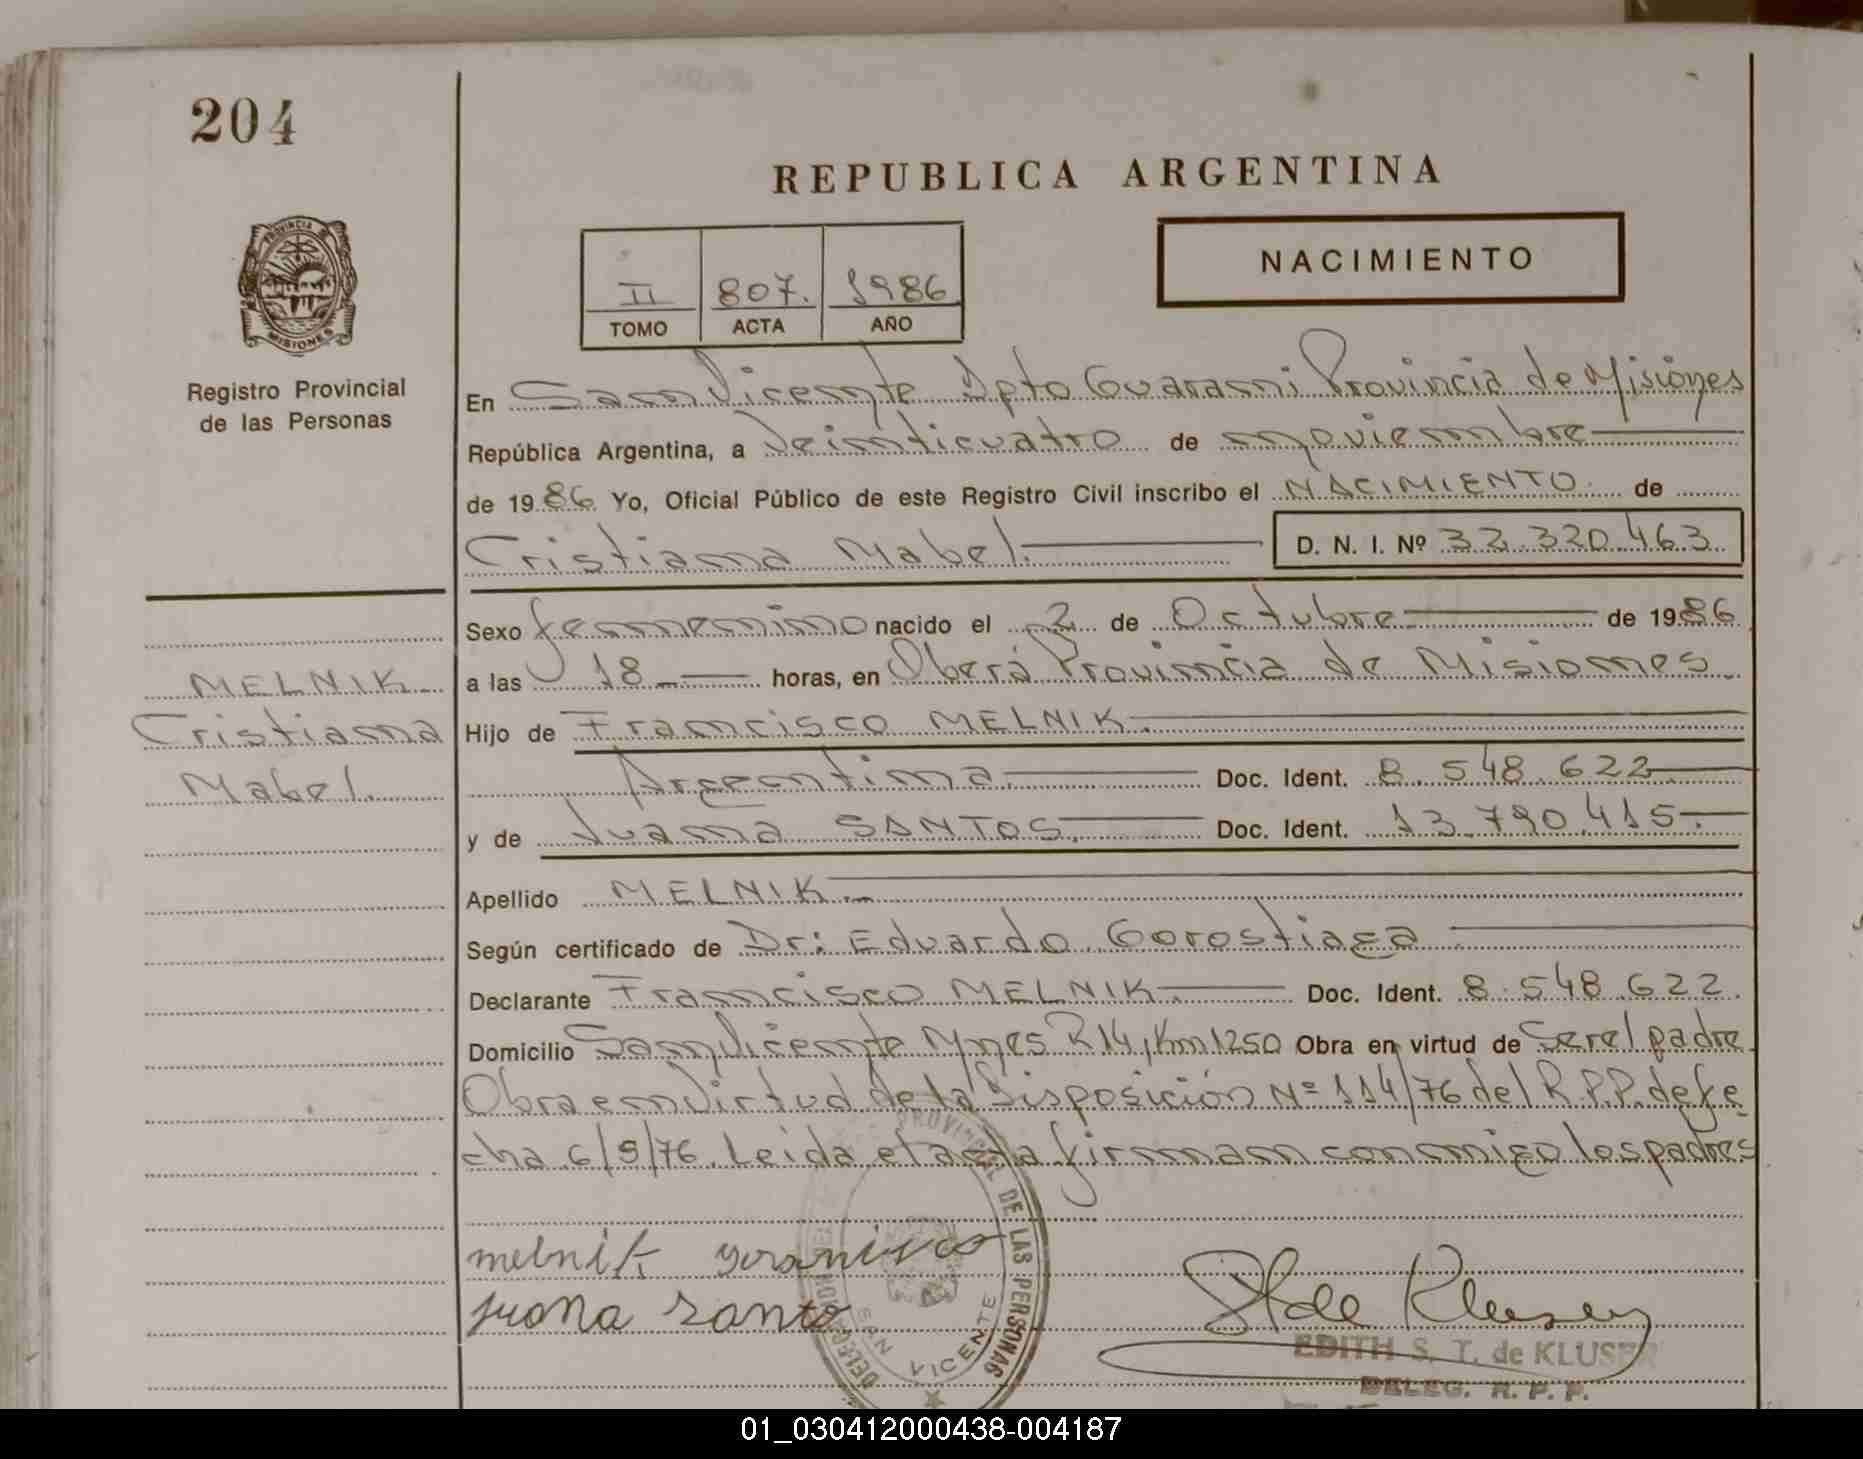 204
REPUBLICA ARGENTINA
PROVINCIA DE
MISIONES
Registro Provincial
de las Personas
II 807. 1986
TOMO ACTA AÑO
NACIMIENTO
En San Vicente Dpto Guarani Provincia de Misiones
República Argentina, a Veinticuatro de noviembre
de 1986 Yo, Oficial Público de este Registro Civil inscribo el NACIMIENTO de
Cristiana Mabel. D. N. I. Nº 32.320.463
Sexo femenino nacido el 2 de Octubre de 1986
a las 18 horas, en Oberá Provincia de Misiones.
Hijo de Francisco MELNIK.
Argentina. Doc. Ident. 8.548.622
y de Juana SANTOS. Doc. Ident. 13.790.415.
Apellido MELNIK.
Según certificado de Dr: Eduardo Gorostiaga
Declarante Francisco MELNIK. Doc. Ident. 8.548.622.
Domicilio San Vicente Mnes R 14, Km 1250 Obra en virtud de Ser el padre
Obra en Virtud de la Disposición Nº 114/76 del R.P.P. de fe
cha 6/9/76. Leida el acta firman conmigo los padres
MELNIK
Cristiana
Mabel.
melnik
juana santo
DELEGACION PROVINCIAL DE LAS PERSONAS
SAN VICENTE
S T de Kluser
EDITH S. T. de KLUSER
DELEG. R. P. P.
01_030412000438-004187